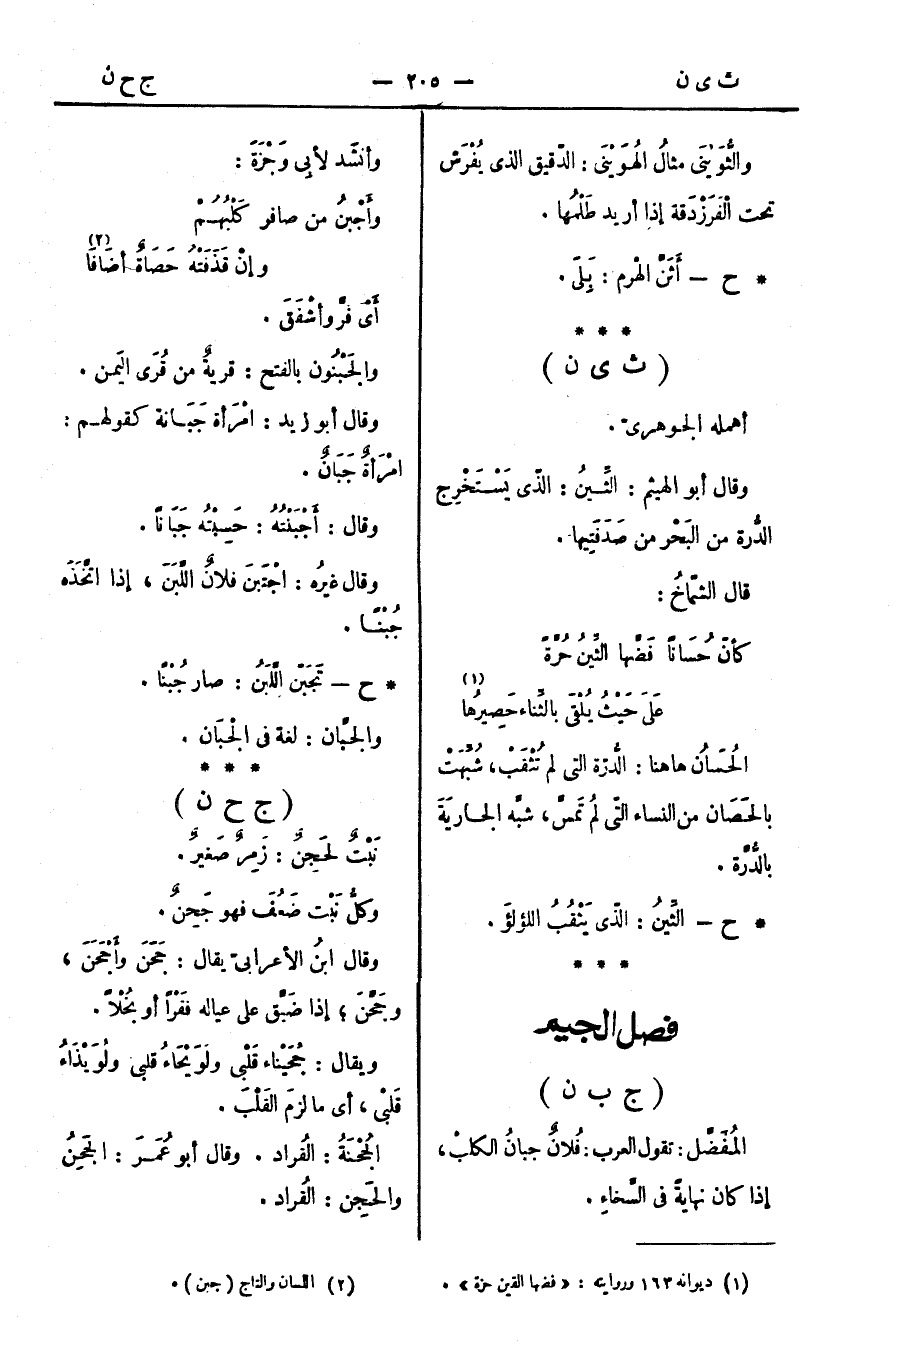 ث ى ن
— ٢٠٥ —
ج ح ن
والثُّوَيْنَى مثالُ الهُوَيْنَى : الدّقيق الذى يُفْرَش
تحت الْفَرَزْدَقة إذا أريد طَلْمُها .
* ح — أَثَنَّ الهْرم : بَلِىَ .
* * *
( ث ى ن )
أهمله الجوهرىّ .
وقال أبو الهيثم : الثِّينُ : الذّى يَسْتَخْرِج
الدُّرة من البَحْر من صَدَفَتِيها .
قال الشّمّاخُ :
كأنّ حُسَاناً فَضَّها الثِّينُ حُرَّةً
عَلَى حَيْثُ يُلْقَى بالثِّناء حَصِيرُها (١)
الحُسَانُ هاهنا : الدُّرّة التى لم تُثْقَبْ ، شُبِّهَتْ
بالحَصَان من النساء التّى لمُ تمَسَّ ، شبَّه الجاريَةَ
بالدُّرّة .
* ح — الثِّينُ : الذّى يَثْقُبُ اللؤلؤَ .
* * *
فصل الجيم
( ج ب ن )
المُفَضَّل : تقول العرب : فُلانٌ جبانُ الكلبْ ،
إذا كان نهايةً فى السَّخاءِ .
وأنشَد لأبِى وَجْزَةَ :
وأَجْبَنُ من صافر كَلْبُهُمْ
وإنْ قَذَفَتْهُ حَصَاةٌ أضَافَا (٢)
أَىْ فَرَّ وأشْفَقَ .
والجَبْنُون بالفتح : قريةٌ من قُرَى اليَمن .
وقال أبو زيد : امْرَأة جَبَانة كقولهم :
امْرَأةٌ جَبَانٌ .
وقال : أجْبَنْتُهُ : حَسِبْتُه جَبَاناً .
وقال غيرُه : اجْتَبنَ فلانٌ اللَّبَنَ ، إذا اتَّخَذَه
جُبْنًا .
* ح — تَجَبّنَ اللَّبَنُ : صار جُبْنًا .
والجَبَّان : لغة فى الجَبَان .
* * *
( ج ح ن )
نَبْتٌ لجَحِنٌ : زَمِرٌ صَغيرٌ .
وكلُّ نَبْت ضَعُفَ فهو جَحِنٌ .
وقال ابنُ الأعرابىّ يقال : جَحَنَ وأَجْحَنَ ،
وجَحَّنَ ؛ إذا ضَيَّق على عياله فَقْراً أو بُخْلاً .
ويقال : جُحَيْناء قَلْبى ولَوَيْحَاءُ قلبى ولُوَيْذَاءُ
قَلبْى ، أى ما لزمَ القَلْبَ .
الجُحْنَةُ : القُراد . وقال أبو عُمَرَ : الجَحِنُ
والحَجِن : القُراد .
(١) ديوانه ١٦٣ وروايته : « فضها القين حرة » .
(٢) اللسان والتاج ( جبن ) .